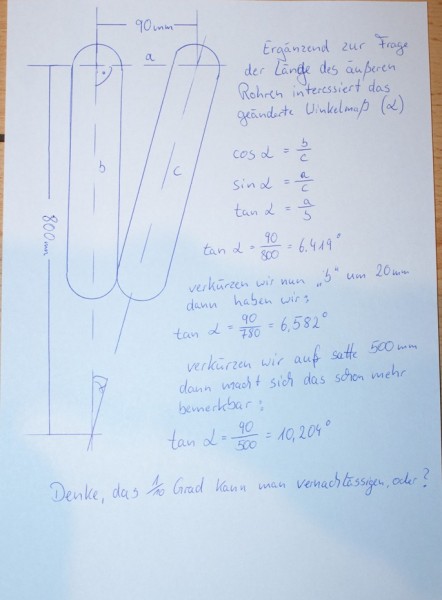 90mm
a
b
c
800mm
Ergänzend zur Frage
der Länge des äußeren
Rohren interessiert das
geänderte Winkelmaß (α)
cos α = b/c
sin α = a/c
tan α = a/b
tan α = 90/800 = 6.419°
verkürzen wir nun „b" um 20mm
dann haben wir:
tan α = 90/780 = 6,582°
verkürzen wir auf satte 500mm
dann macht sich das schon mehr
bemerkbar:
tan α = 90/500 = 10,204°
Denke, das 1/10 Grad kann man vernachlässigen, oder?